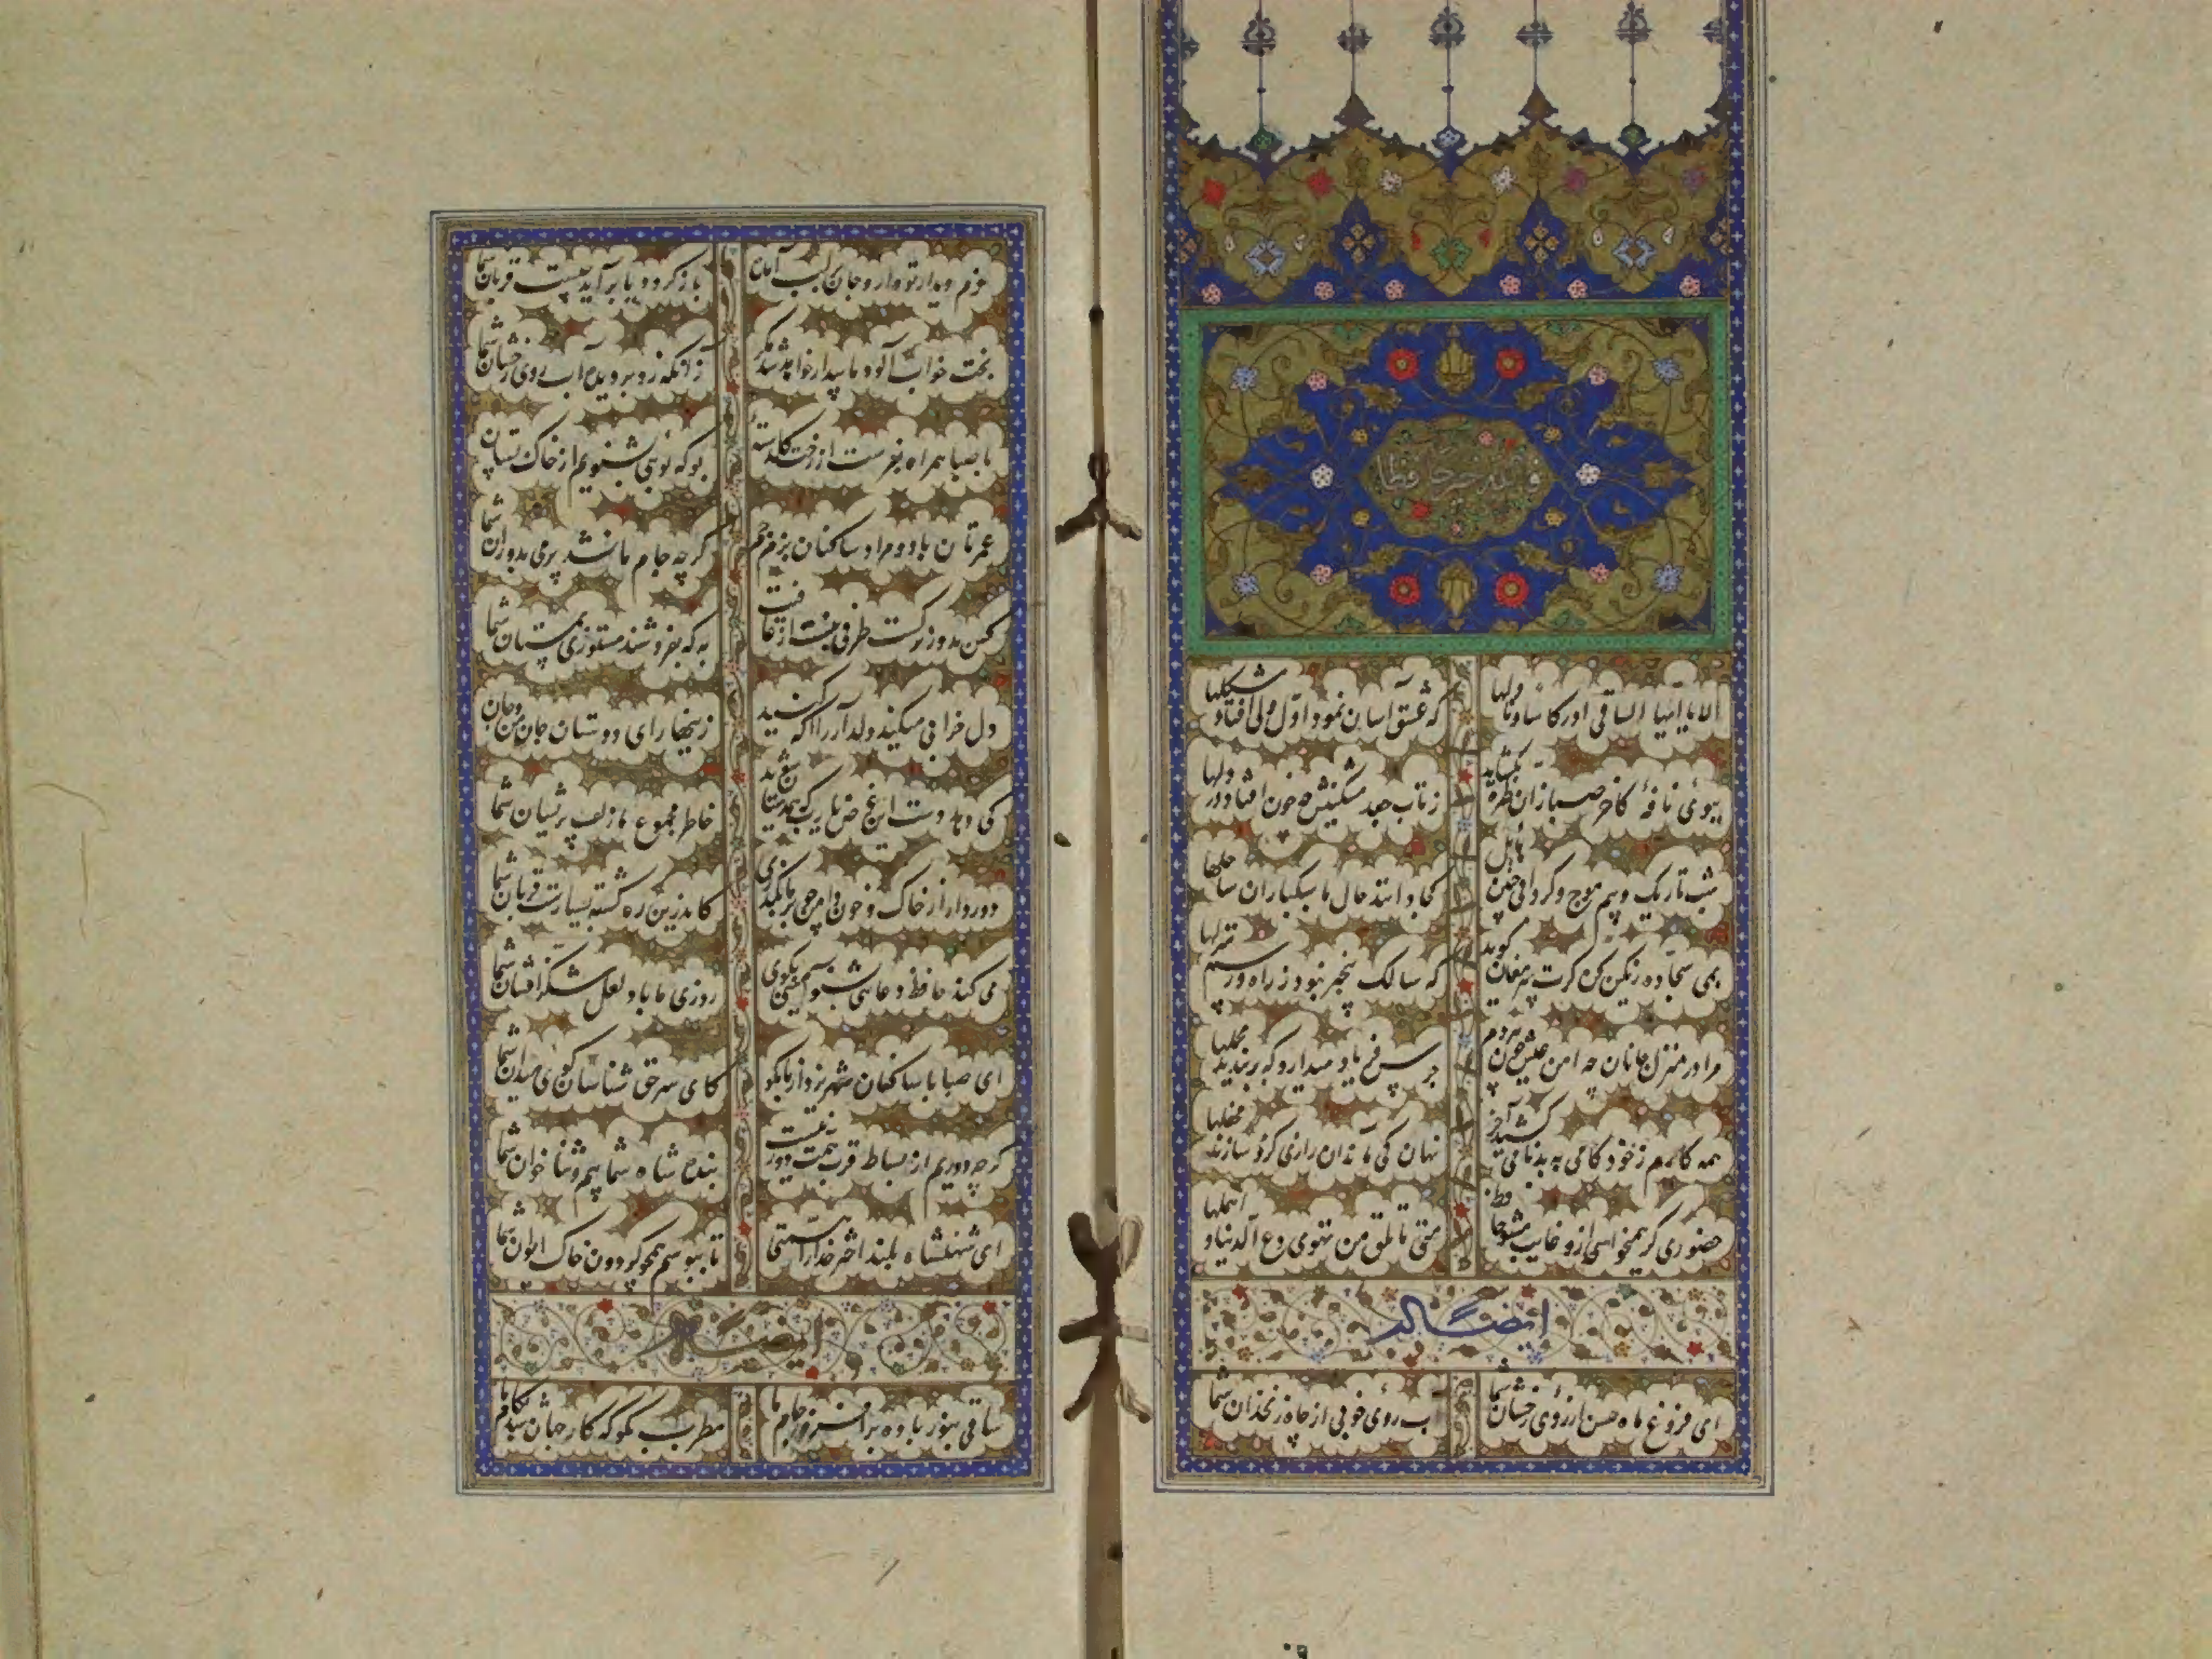 فالله خیر حافظا
الا یا ایها الساقی ادر کاسا و ناولها که عشق آسان نمود اول ولی افتاد مشکلها
ببوی نافهٔ کاخر صبا زان طره بگشاید ز تاب جعد مشکینش چه خون افتاد در دلها
شب تاریک و بیم موج و گردابی چنین هایل کجا دانند حال ما سبکباران ساحلها
بمی سجاده رنگین کن گرت پیر مغان گوید که سالک بیخبر نبود ز راه و رسم منزلها
مرا در منزل جانان چه امن عیش چون هر دم جرس فریاد میدارد که بربندید محملها
همه کارم ز خود کامی به بدنامی کشید آخر نهان کی ماند آن رازی کزو سازند محفلها
حضوری گر همیخواهی ازو غایب مشو حافظ متی ما تلق من تهوی دع الدنیا و اهملها
ایضاً له
ای فروغ ماه حسن از روی رخشان شما آب روی خوبی از چاه زنخدان شما
عزم دیدار تو دارد جان بر لب آمده باز گردد یا برآید چیست فرمان شما
بخت خواب آلود ما بیدار خواهد شد مگر زانکه زد بر دیده آب روی رخشان شما
با صبا همراه بفرست از رخت گلدستهٔ بو که بوئی بشنویم از خاک بستان شما
عمرتان باد و مراد ساکنان بزم جم گرچه جام ما نشد پر می بدوران شما
کس بدور نرگست طرفی نبست از عافیت به که بفروشند مستوری بمستان شما
دل خرابی میکند دلدار را آگه کنید زینهار ای دوستان جان من و جان شما
کی دهد دست این غرض یا رب که همدستان شوند خاطر مجموع ما زلف پریشان شما
دور دار از خاک و خون دامن چو بر ما بگذری کاندرین ره کشته بسیارند قربان شما
می کند حافظ دعائی بشنو آمینی بگوی روزی ما باد لعل شکر افشان شما
ای صبا با ساکنان شهر یزد از ما بگو کای سر حق ناشناسان گوی میدان شما
گرچه دوریم از بساط قرب همت دور نیست بنده شاه شمائیم و ثنا خوان شما
ای شهنشاه بلند اختر خدا را همتی تا ببوسم همچو گردون خاک ایوان شما
ایضاً له
ساقی بنور باده برافروز جام ما مطرب بگو که کار جهان شد بکام ما